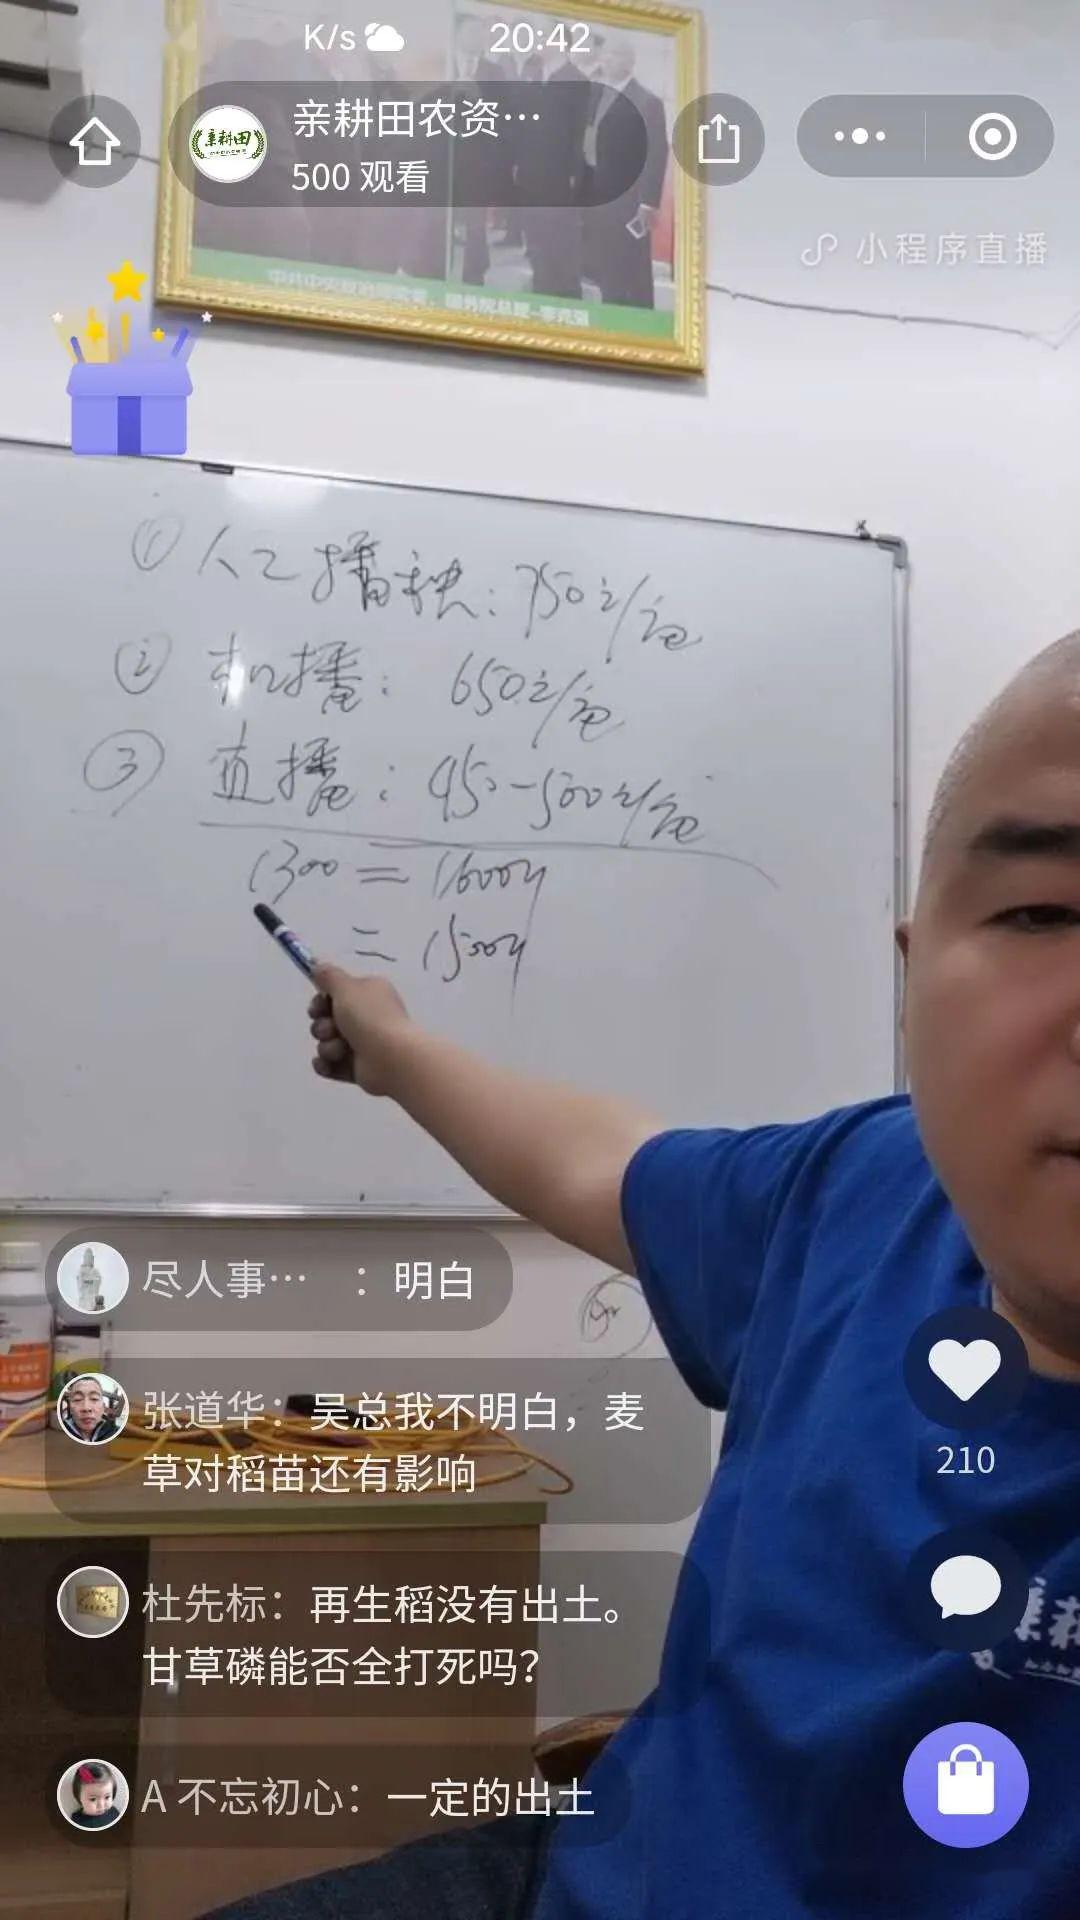 K/s
20:42
亲耕田农资…
500 观看
亲耕田
小程序直播
① 人工播秧：750元/亩
② 机播：650元/亩
③ 直播：450-500元/亩
1300 = 1600斤
= 1500斤
尽人事… ：明白
张道华：吴总我不明白，麦
草对稻苗还有影响
210
杜先标：再生稻没有出土。
甘草磷能否全打死吗？
A 不忘初心：一定的出土